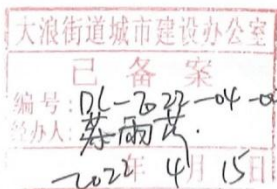 大浪街道城市建设办公室
已备案
编号：DL-2022-04-0
经办人：
2022年4月15日